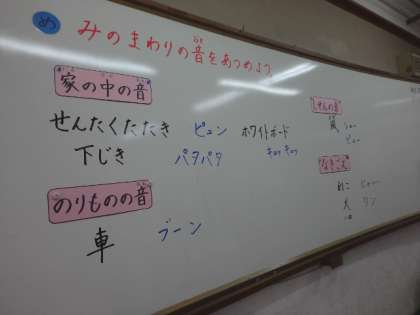 め みのまわりの音をあつめよう。
家の中の音
せんたくたたき ピュン ホワイトボード
下じき パタパタ キュッキュッ
のりものの音
車 ブーン
しぜんの音
風
なきごえ
ねこ
犬 ワン